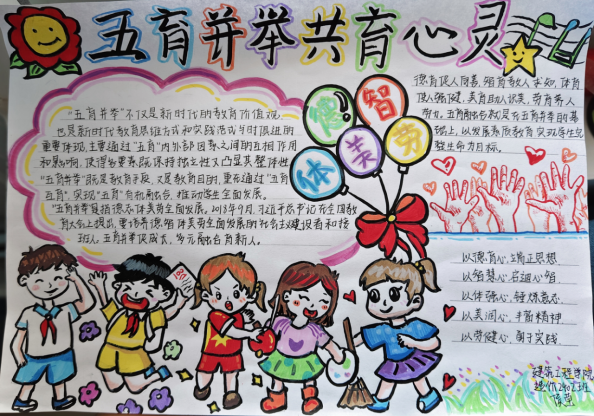 五育并举共育心灵
"五育并举"不仅是新时代的教育价值观,
也是新时代教育思维方式和实践范式与时俱进的
重要体现,主要通过"五育"内外部因素之间的互相作用
和影响,使得各要素既保持独立性又凸显其整体性
"五育并举"既是教育手段,又是教育目的,重构通过"五育
互育"实现"五育"有机融合,推动学生全面发展。
"五育并举"是指德志体美劳全面发展。2018年9月,习近平总书记在全国教
育大会上提出,要培养德智体美劳全面发展的社会主义建设者和接
班人,五育并举促成长,多元融合育新人。
德
智
体
美
劳
德育使人向善,智育教人求知,体育
使人强健,美育助人识美,劳育
五育融合就是在五育并举的基
础上,以发展素质教育实现学生
整生命力目标。
以德育心,端正思想
以智慧心,启迪心智
以体强心,锤炼意志
以美润心,丰富精神
以劳健心,勇于实践
建筑工程学院